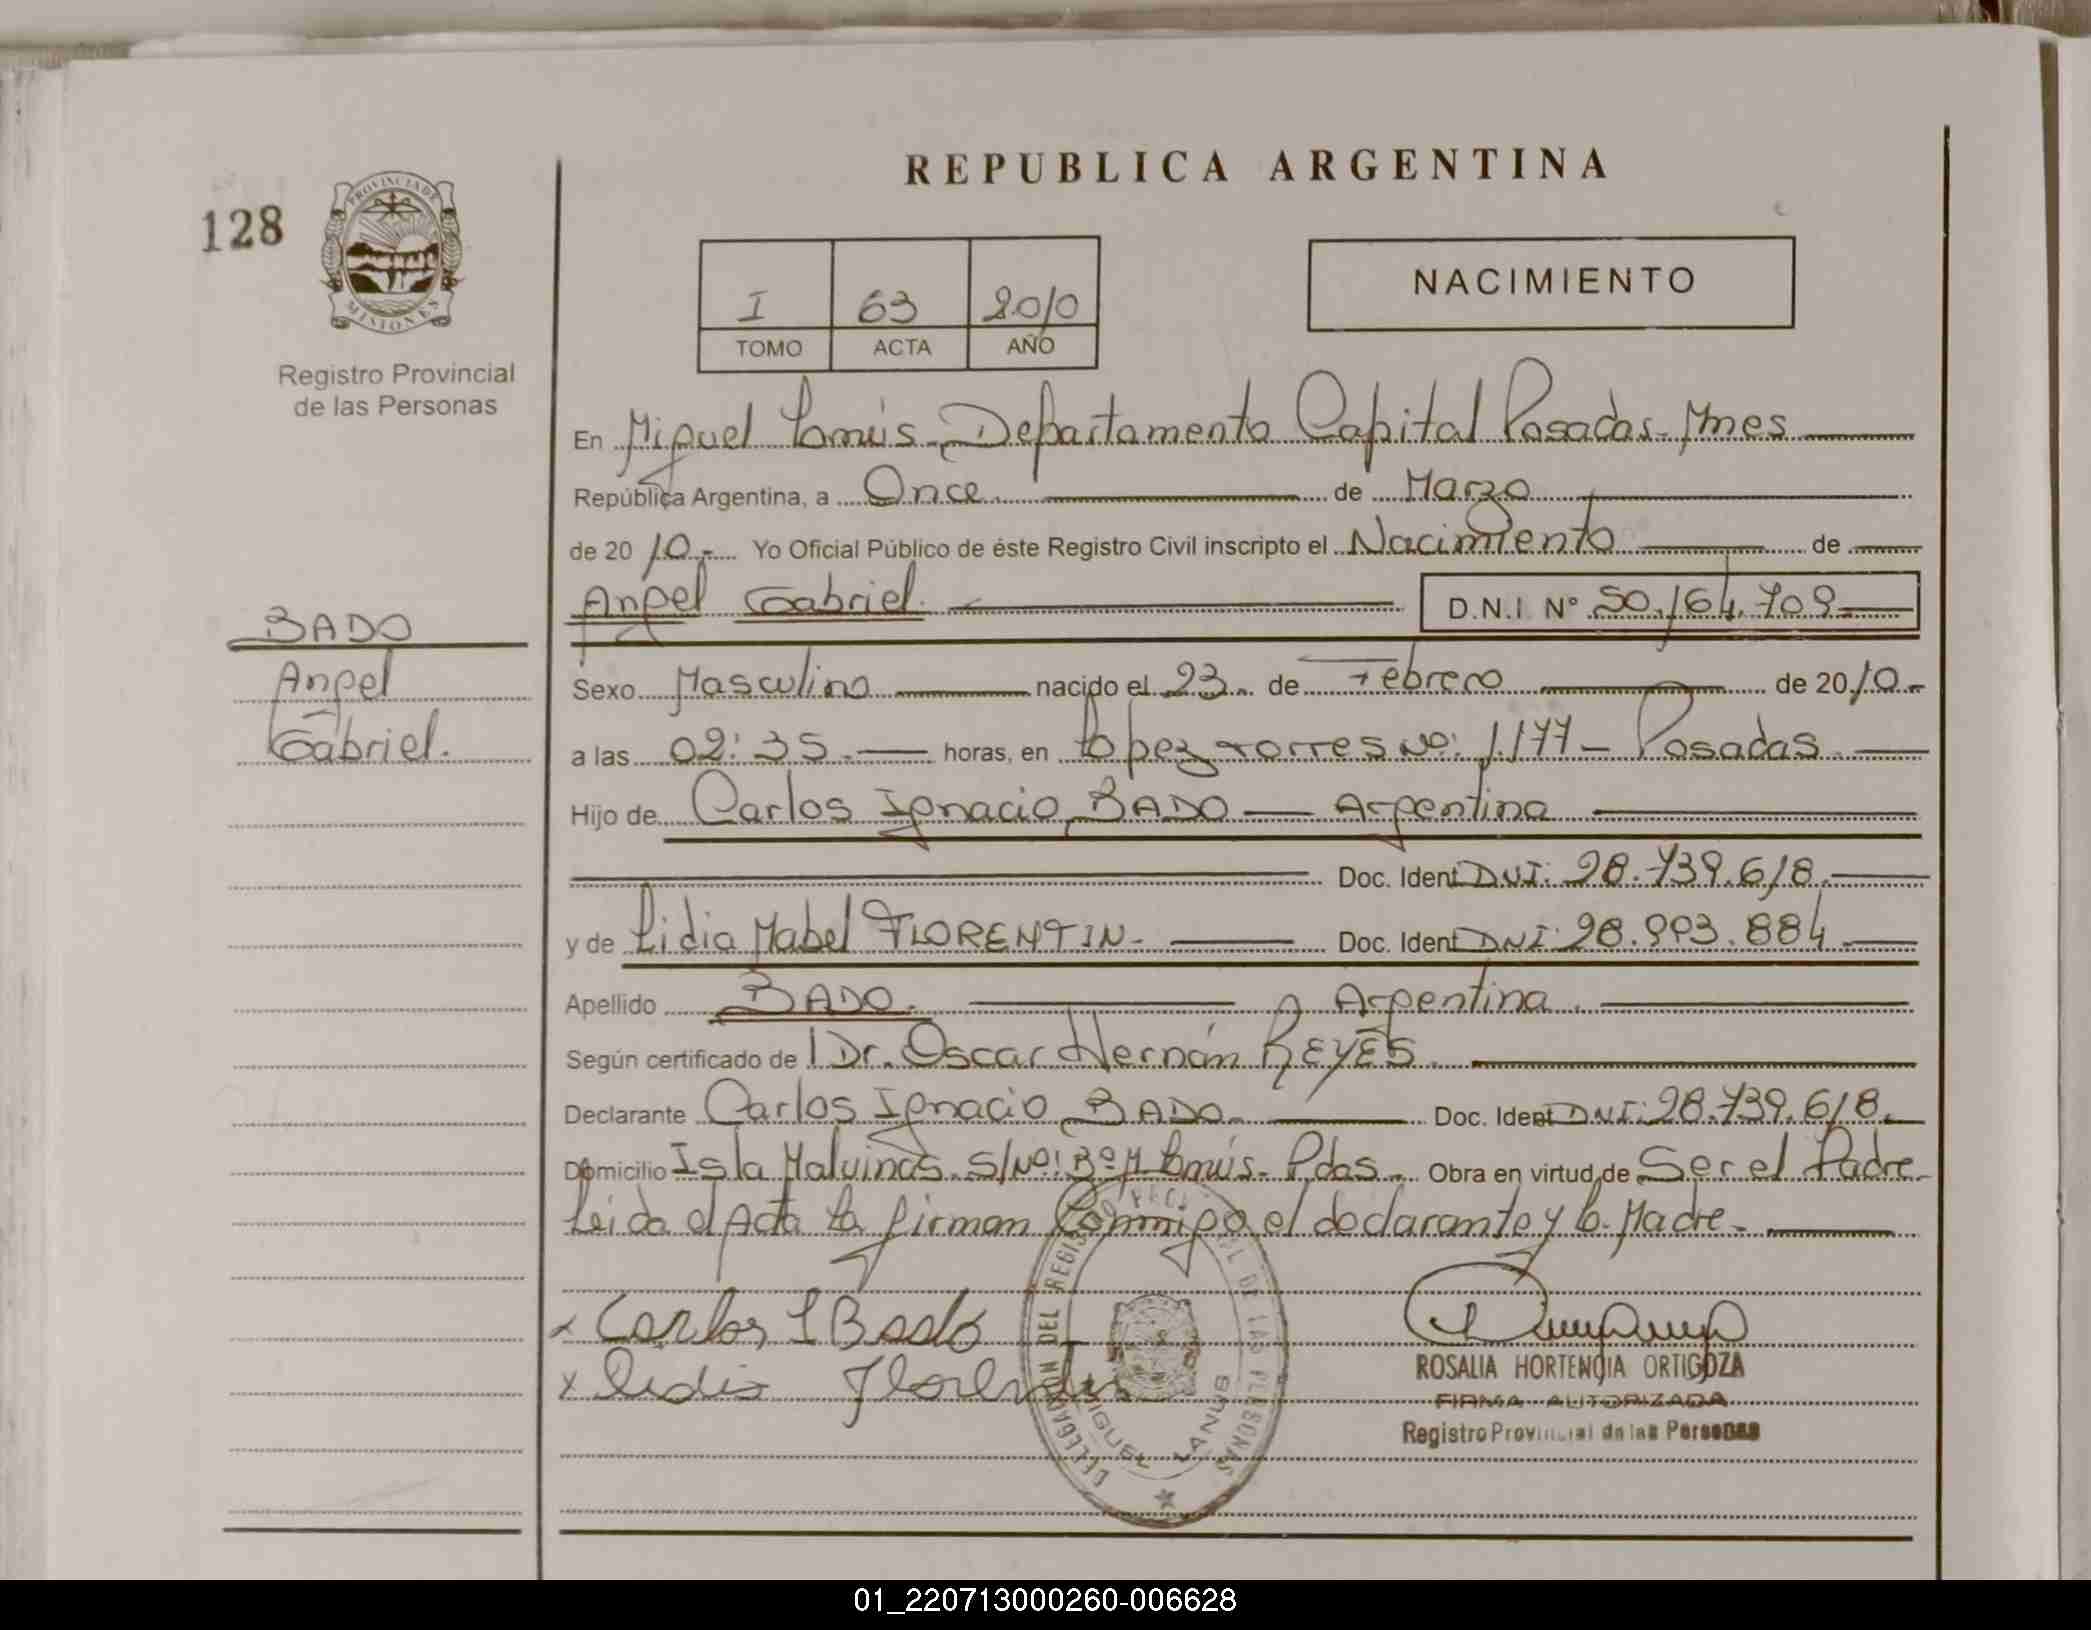 REPUBLICA ARGENTINA
128
PROVINCIA DE
MISIONES
Registro Provincial
de las Personas
I 63 2010
TOMO ACTA AÑO
NACIMIENTO
En Miguel Lanús - Departamento Capital Posadas - Mnes
República Argentina, a Once de Marzo
de 2010.- Yo Oficial Público de éste Registro Civil inscripto el Nacimiento de
Angel Gabriel. D.N.I. Nº 50.164.709
BADO
Angel
Gabriel.
Sexo Masculino nacido el 23 de Febrero de 2010.-
a las 02:35 horas, en López Torres Nº: 1.177 - Posadas.
Hijo de Carlos Ignacio BADO Argentina
Doc. Ident DNI: 28.739.618.
y de Lidia Mabel FLORENTIN.- Doc. Ident DNI: 28.993.884
Apellido BADO. Argentina.
Según certificado de Dr. Oscar Hernán REYES.
Declarante Carlos Ignacio BADO.- Doc. Ident DNI: 28.739.618.
Domicilio Isla Malvinas. S/Nº: Bº M. Lanús - Pdas. Obra en virtud de Ser el Padre
Leida el Acta La firman Conmigo el declarante y la Madre.-
x Carlos I Bado
x Lidia Florentin
DELEGACION DEL REGISTRO PROVINCIAL DE LAS PERSONAS
MIGUEL LANUS
ROSALIA HORTENCIA ORTIGOZA
FIRMA AUTORIZADA
Registro Provincial de las Personas
01_220713000260-006628